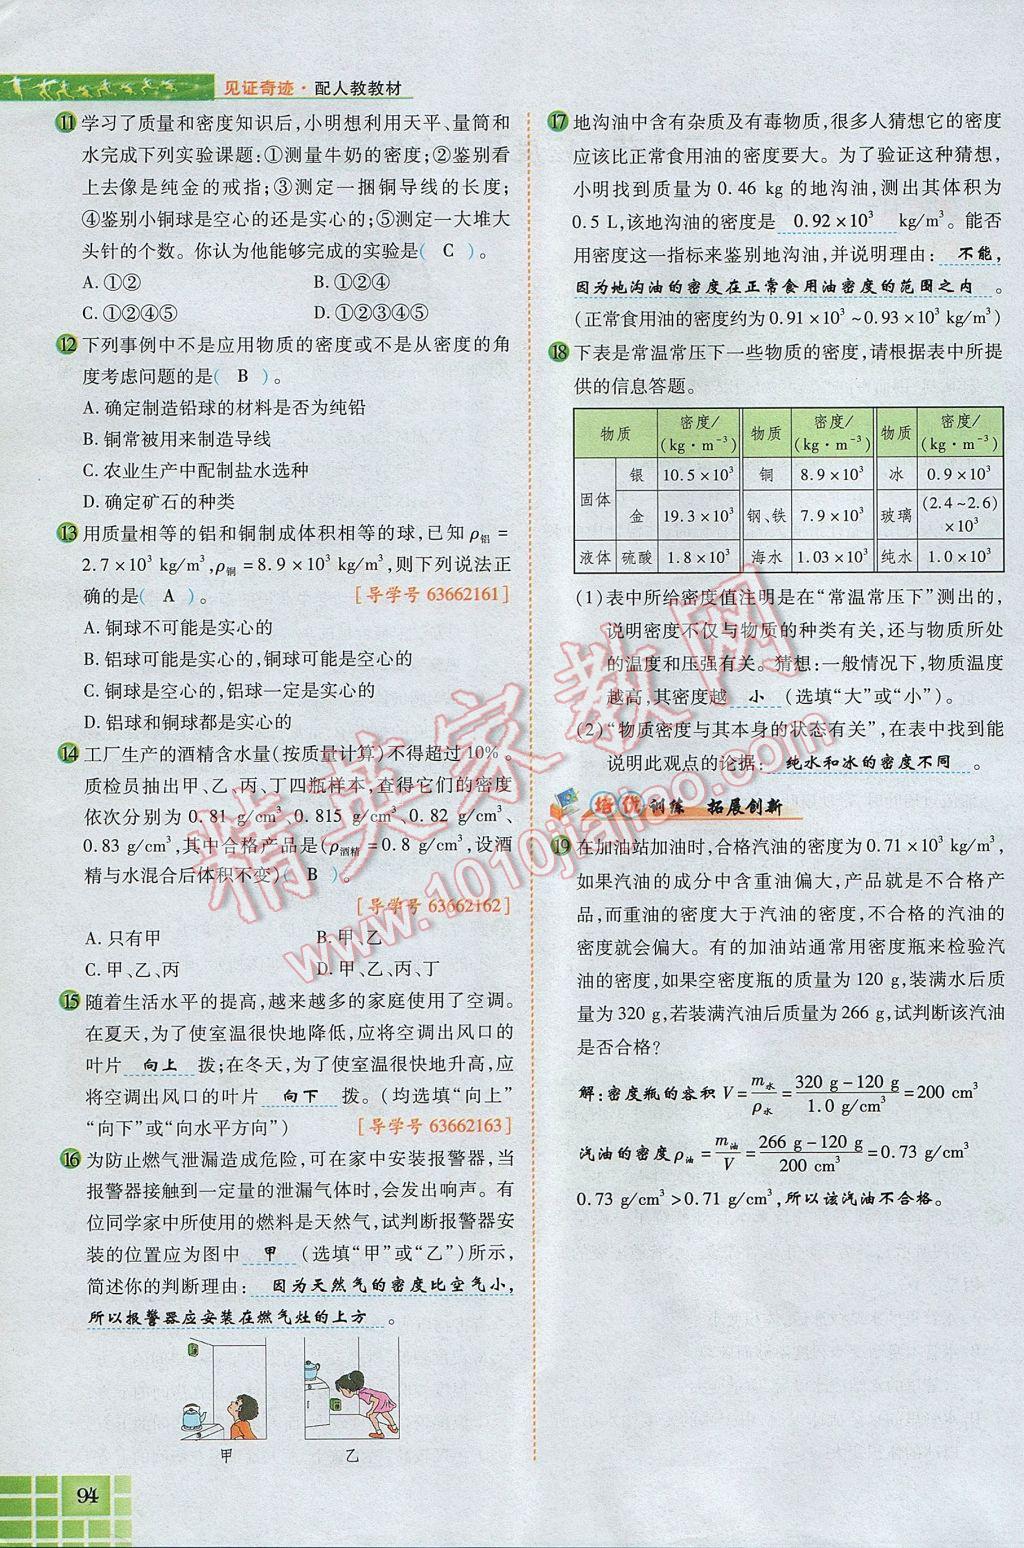 见证奇迹·配人教教材
11 学习了质量和密度知识后,小明想利用天平、量筒和
水完成下列实验课题:①测量牛奶的密度;②鉴别看
上去像是纯金的戒指;③测定一捆铜导线的长度;
④鉴别小铜球是空心的还是实心的;⑤测定一大堆大
头针的个数。你认为他能够完成的实验是( C )。
A. ①② B. ①②④
C. ①②④⑤ D. ①②③④⑤
12 下列事例中不是应用物质的密度或不是从密度的角
度考虑问题的是( B )。
A. 确定制造铅球的材料是否为纯铅
B. 铜常被用来制造导线
C. 农业生产中配制盐水选种
D. 确定矿石的种类
13 用质量相等的铝和铜制成体积相等的球,已知ρ铝=
2.7×10³ kg/m³,ρ铜=8.9×10³ kg/m³,则下列说法正
确的是( A )。 [导学号 63662161]
A. 铜球不可能是实心的
B. 铝球可能是实心的,铜球可能是空心的
C. 铜球是空心的,铝球一定是实心的
D. 铝球和铜球都是实心的
14 工厂生产的酒精含水量(按质量计算)不得超过10%。
质检员抽出甲、乙、丙、丁四瓶样本,查得它们的密度
依次分别为0.81 g/cm³、0.815 g/cm³、0.82 g/cm³、
0.83 g/cm³,其中合格产品是(ρ酒精=0.8 g/cm³,设酒
精与水混合后体积不变)( B )。
[导学号 63662162]
A. 只有甲 B. 甲、乙
C. 甲、乙、丙 D. 甲、乙、丙、丁
15 随着生活水平的提高,越来越多的家庭使用了空调。
在夏天,为了使室温很快地降低,应将空调出风口的
叶片 向上 拨;在冬天,为了使室温很快地升高,应
将空调出风口的叶片 向下 拨。(均选填“向上”
“向下”或“向水平方向”) [导学号 63662163]
16 为防止燃气泄漏造成危险,可在家中安装报警器,当
报警器接触到一定量的泄漏气体时,会发出响声。有
位同学家中所使用的燃料是天然气,试判断报警器安
装的位置应为图中 甲 (选填“甲”或“乙”)所示,
简述你的判断理由: 因为天然气的密度比空气小,
所以报警器应安装在燃气灶的上方 。
甲 乙
94
17 地沟油中含有杂质及有毒物质,很多人猜想它的密度
应该比正常食用油的密度要大。为了验证这种猜想,
小明找到质量为0.46 kg的地沟油,测出其体积为
0.5 L,该地沟油的密度是 0.92×10³ kg/m³。能否
用密度这一指标来鉴别地沟油,并说明理由: 不能,
因为地沟油的密度在正常食用油密度的范围之内 。
(正常食用油的密度约为0.91×10³~0.93×10³ kg/m³)
18 下表是常温常压下一些物质的密度,请根据表中所提
供的信息答题。
物质 密度/(kg·m⁻³) 物质 密度/(kg·m⁻³) 物质 密度/(kg·m⁻³)
固体 银 10.5×10³ 铜 8.9×10³ 冰 0.9×10³
金 19.3×10³ 钢、铁 7.9×10³ 玻璃 (2.4~2.6)×10³
液体 硫酸 1.8×10³ 海水 1.03×10³ 纯水 1.0×10³
(1)表中所给密度值注明是在“常温常压下”测出的,
说明密度不仅与物质的种类有关,还与物质所处
的温度和压强有关。猜想:一般情况下,物质温度
越高,其密度越 小 (选填“大”或“小”)。
(2)“物质密度与其本身的状态有关”,在表中找到能
说明此观点的论据: 纯水和冰的密度不同 。
培优训练 拓展创新
19 在加油站加油时,合格汽油的密度为0.71×10³ kg/m³,
如果汽油的成分中含重油偏大,产品就是不合格产
品,而重油的密度大于汽油的密度,不合格的汽油的
密度就会偏大。有的加油站通常用密度瓶来检验汽
油的密度,如果空密度瓶的质量为120 g,装满水后质
量为320 g,若装满汽油后质量为266 g,试判断该汽油
是否合格?
解:密度瓶的容积V=m水/ρ水=(320 g-120 g)/(1.0 g/cm³)=200 cm³
汽油的密度ρ油=m油/V=(266 g-120 g)/(200 cm³)=0.73 g/cm³
0.73 g/cm³>0.71 g/cm³,所以该汽油不合格。
精英家教网
www.1010jiajiao.com